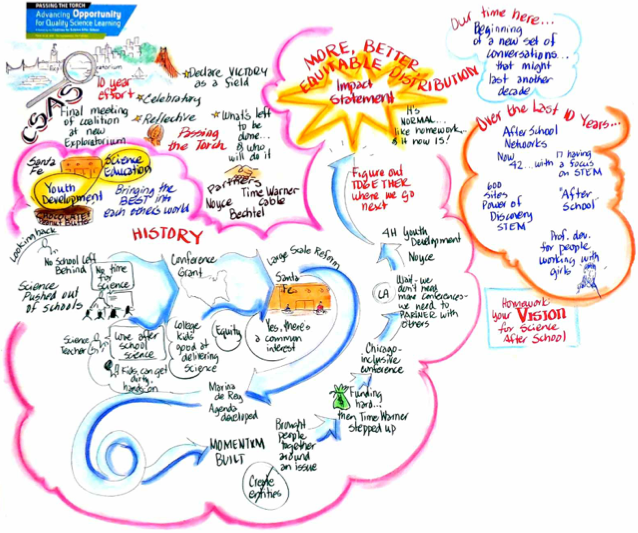 PASSING THE TORCH
Advancing Opportunity
for Quality Science Learning
CSAS
10 year
effort
Final meeting
of coalition
at new
Exploratorium
Declare VICTORY
as a field
Celebratory
Reflective
Passing
the Torch
What's left
to be
done...
& who
will do it
Partners
Time Warner
Cable
Noyce
Bechtel
Santa
Fe
Science
Education
Youth
Development
Bringing the
BEST into
each other's world
MORE, BETTER,
EQUITABLE DISTRIBUTION
Impact
Statement
It's
NORMAL...
like homework...
& it now IS!
Our time here...
Beginning
of a new set of
conversations...
that might
last another
decade
Over the Last 10 Years...
AfterSchool
Networks
Now
42...with
17 having
a focus
on STEM
600
Sites
Power of
Discovery
STEM
"After
School"
Prof. dev.
for people
working with
girls
Homework
your VISION
for Science
After School
HISTORY
Looking back
No School Left
Behind
No time
for
science
Science
Pushed out
of schools
Conference
Grant
Large Scale Reform
Santa
Fe
Science
Teacher
Love after
school
science
Kids can get
dirty,
hands on
College
kids
good at
delivering
science
Equity
Yes, there's
a common
interest
Marina
de Rey
Agenda
developed
MOMENTUM
BUILT
Brought
people
together
around
an issue
Create
entities
Funding
hard...
then Time Warner
stepped up
Chicago-
inclusive
conference
LA
Wait - we
don't need
more conferences-
we need to
PARTNER with
others
4H Youth
Development
Noyce
Figure out
TOGETHER
where we go
next